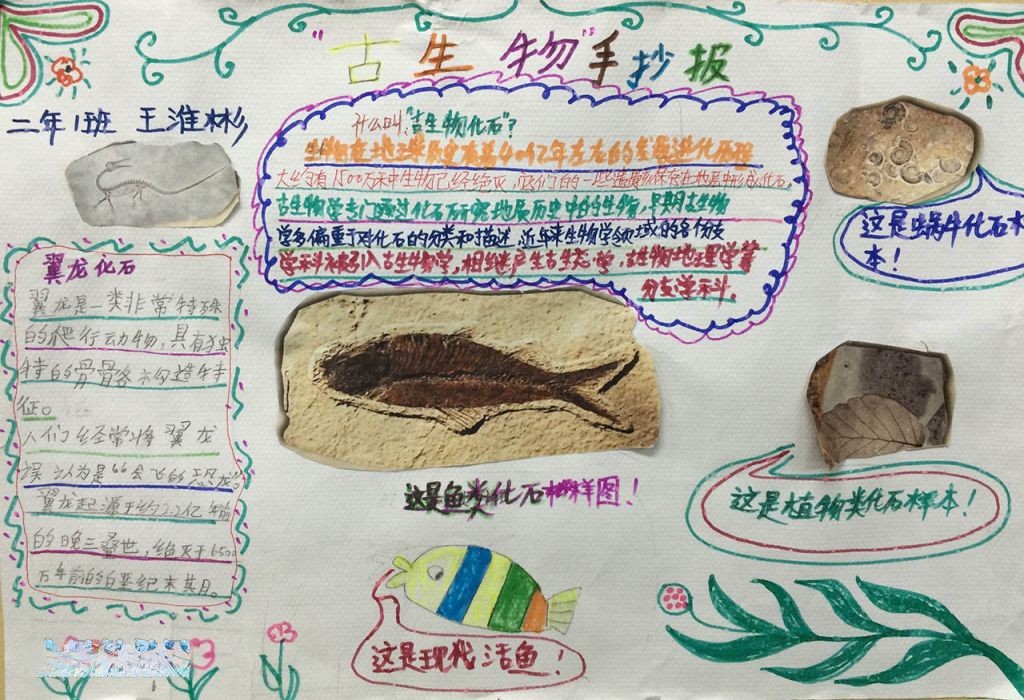 “古生物”手抄报
二年1班 王淮彬
什么叫“古生物化石”？
生物在地球历史有着40亿年左右的发展进化历程
大约有1500万种生物已经绝灭，它们的一些遗骸保存在地层中形成化石，
古生物学专门通过化石研究地质历史中的生物，早期古生物
学多偏重于对化石的分类和描述，近年来生物学领域的各个分支
学科被引入古生物学，相继产生古生态学，古生物地理学等
分支学科。
这是蜗牛化石木
本！
翼龙化石
翼龙是一类非常特殊
的爬行动物，具有独
特的骨骼构造特
征。
人们经常将翼龙
误认为是“会飞的恐龙”。
翼龙起源于约2.2亿年前
的晚三叠世，绝灭于6500
万年前的白垩纪末其月。
这是鱼类化石样图！
这是植物类化石样本！
这是现代活鱼！